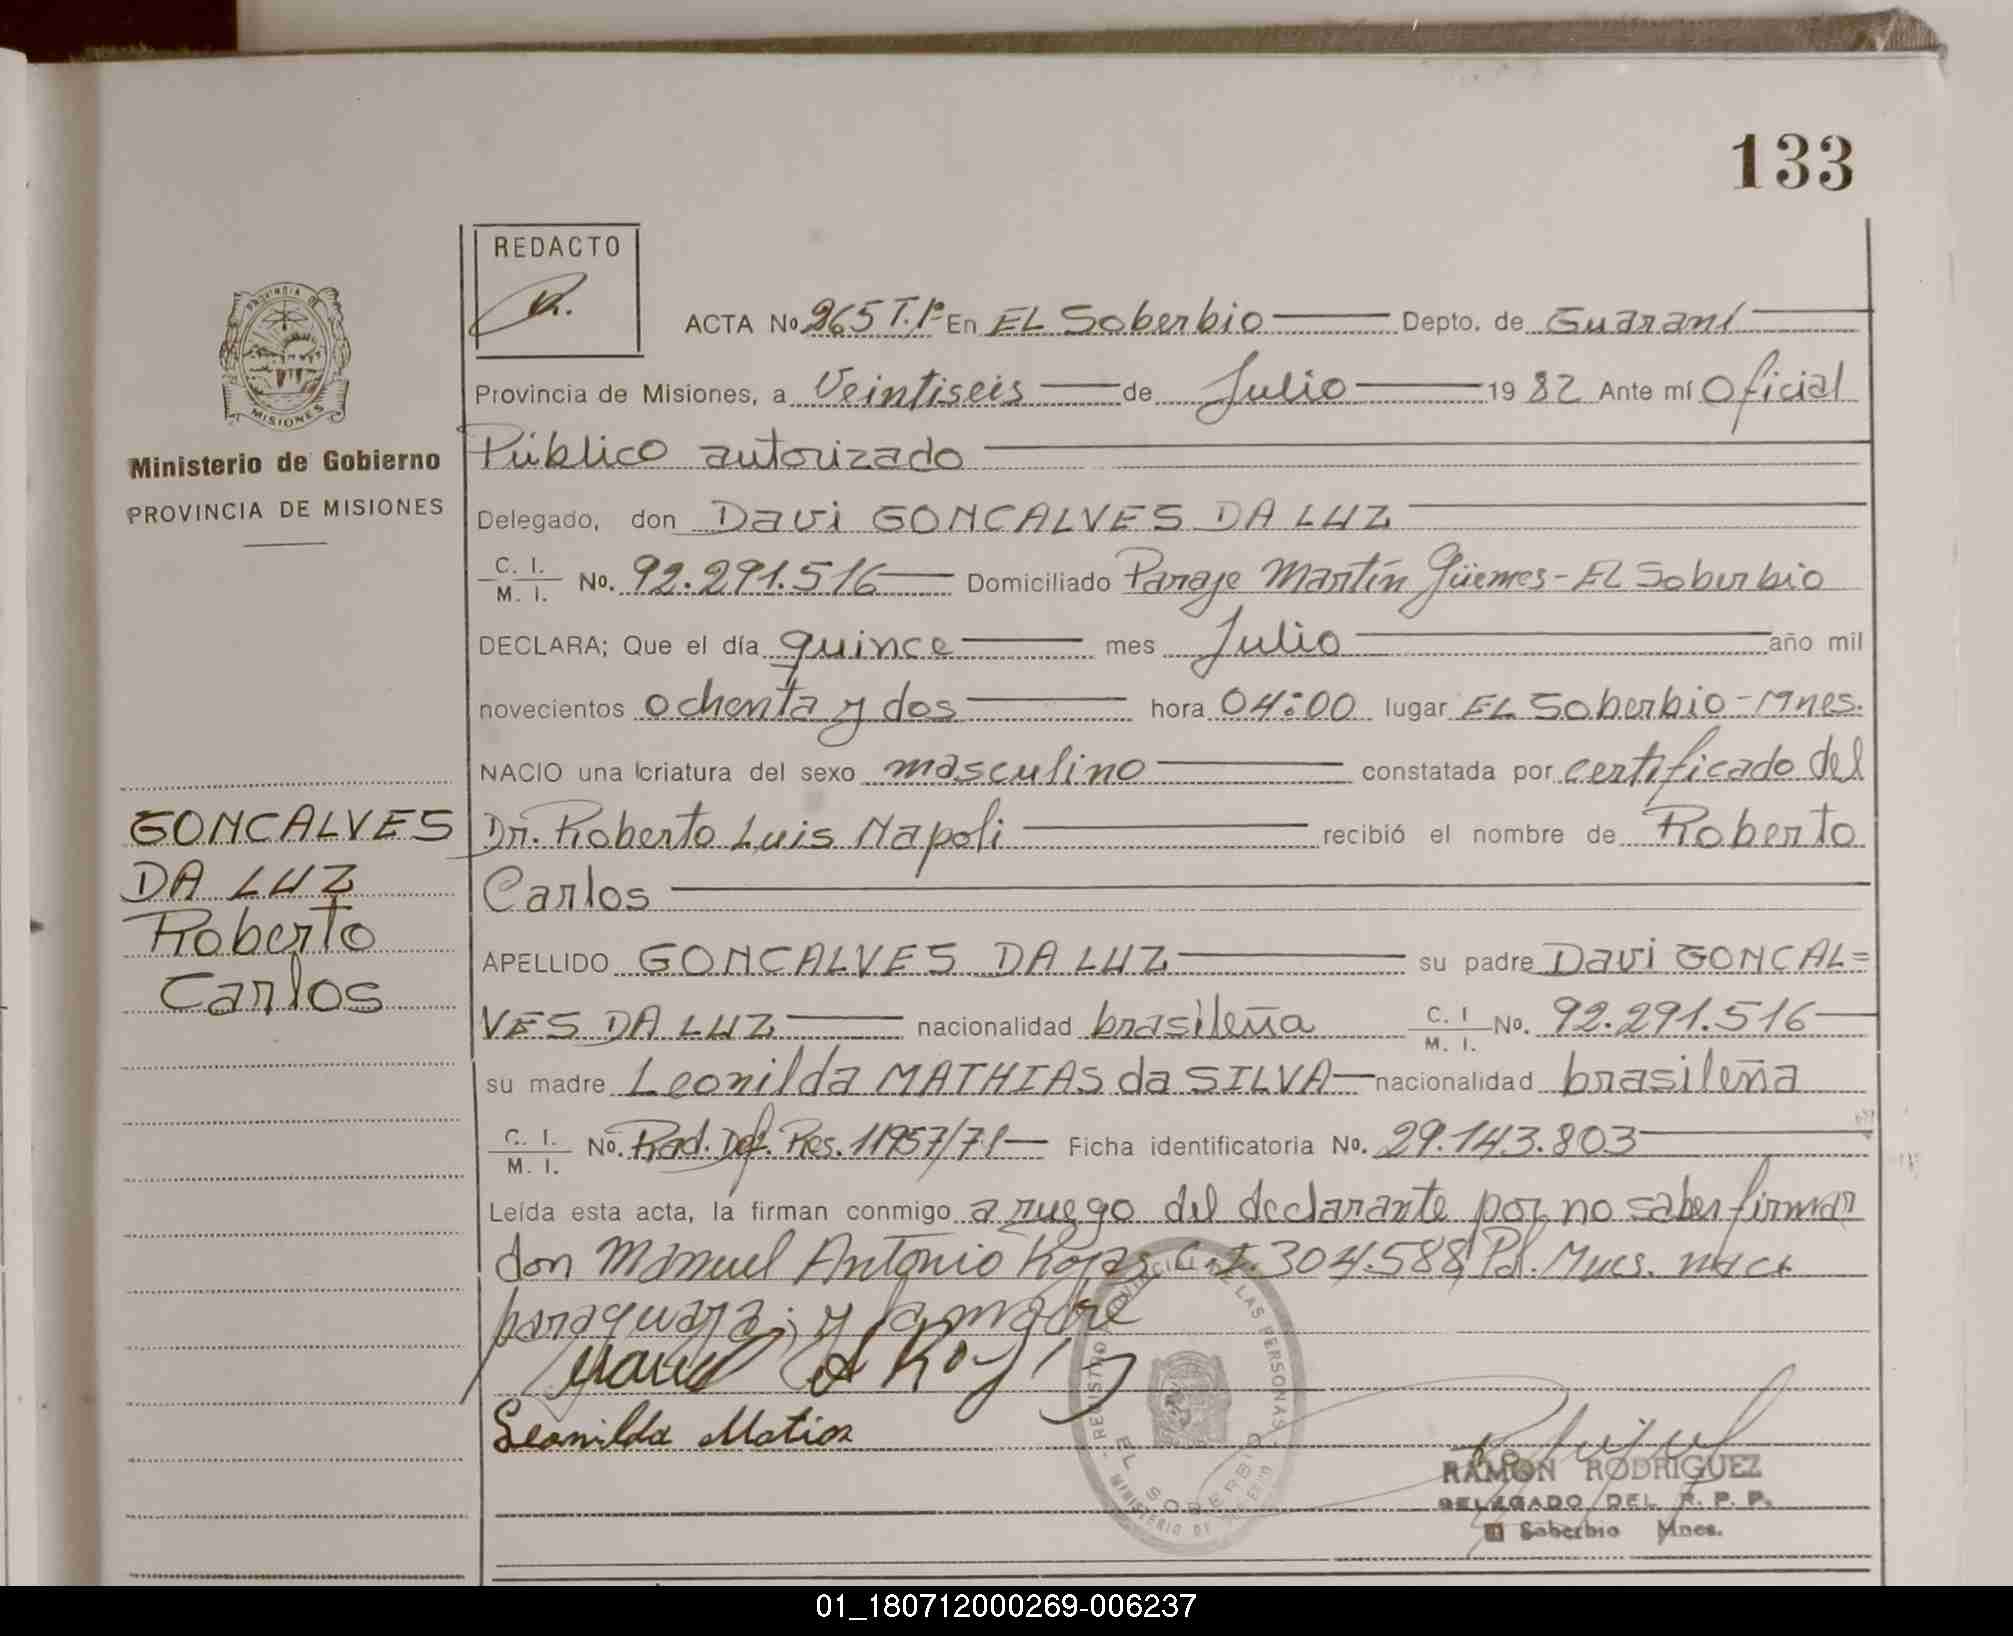 133
REDACTO
ACTA No 265 T.1º En EL Soberbio Depto. de Guaraní
Provincia de Misiones, a Veintiseis de Julio 1982 Ante mí Oficial
Ministerio de Gobierno
Público autorizado
PROVINCIA DE MISIONES
Delegado, don Davi GONCALVES DA LUZ
C. I. M. I. No. 92.291.516 Domiciliado Paraje Martín Güemes - EL Soberbio
DECLARA; Que el día quince mes Julio año mil
novecientos ochenta y dos hora 04:00 lugar EL Soberbio - Mnes.
NACIO una criatura del sexo masculino constatada por certificado del
GONCALVES
Dr. Roberto Luis Napoli recibió el nombre de Roberto
DA LUZ
Carlos
Roberto
APELLIDO GONCALVES DA LUZ su padre Davi GONCAL=
Carlos
VES DA LUZ nacionalidad brasileña C. I M. I. No. 92.291.516
su madre Leonilda MATHIAS da SILVA nacionalidad brasileña
C. I. M. I. No. Rad. Def. Res. 11957/71 Ficha identificatoria No. 29.143.803
Leída esta acta, la firman conmigo a ruego del declarante por no saber firmar
don Manuel Antonio Rojas C.I. 304.588 Pol. Mnes. nac.
paraguaya; y la madre
Leonilda Matias
REGISTRO PROVINCIAL DE LAS PERSONAS
EL SOBERBIO
MINISTERIO DE GOBIERNO
RAMON RODRIGUEZ
DELEGADO DEL R. P. P.
El Soberbio Mnes.
01_180712000269-006237